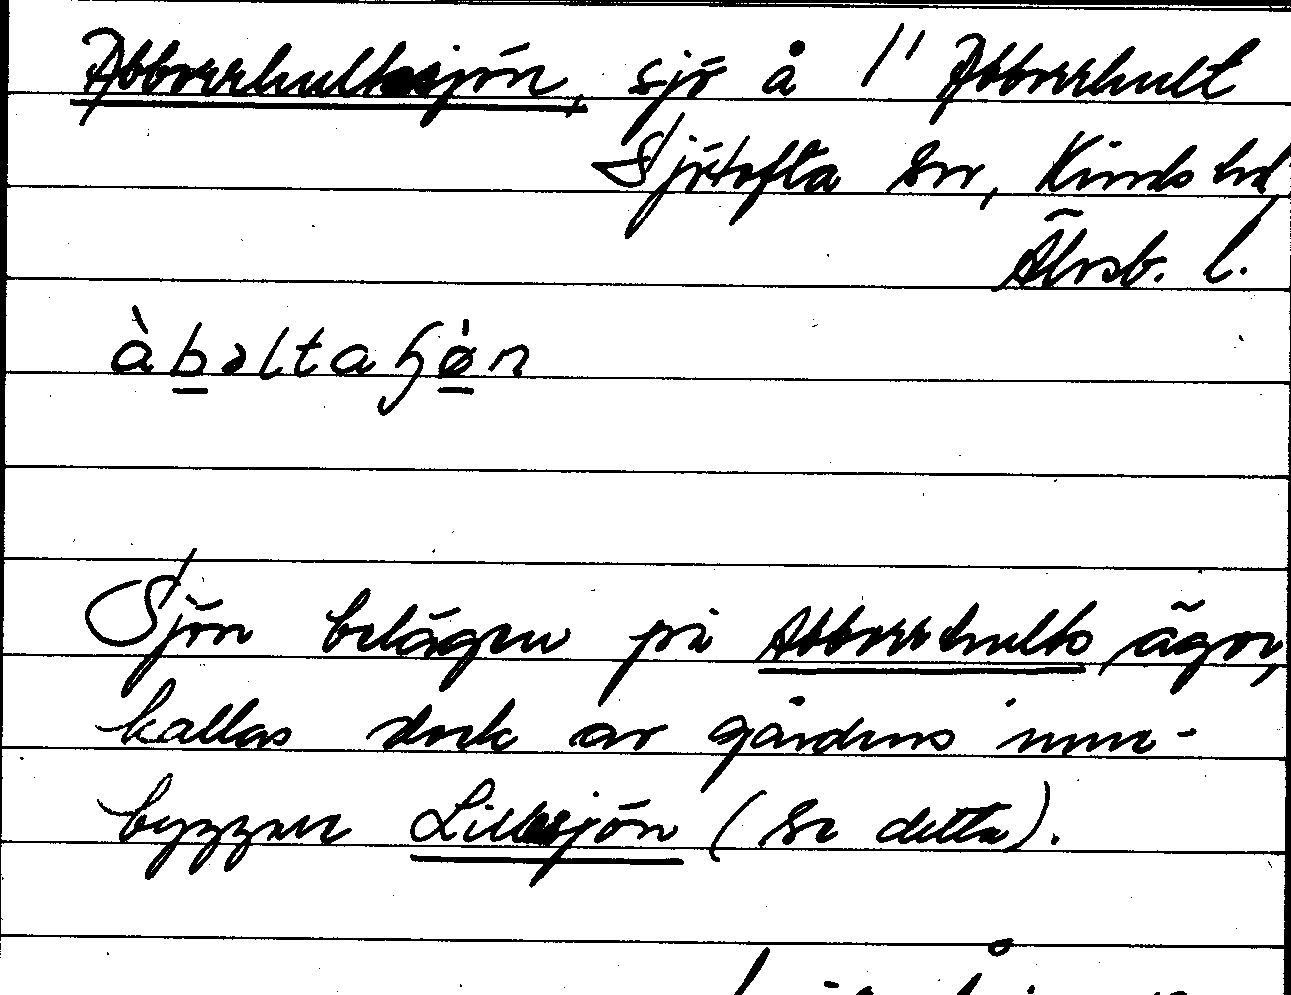 Abborrhultasjön, sjö å 1/1 Abborrhult
Sjötofta sn, Kinds hd,
Älvsb. l.
àbəltaɧø̀n
Sjön belägen på Abborrhults ägor,
kallas dock av gårdens inne-
byggare Lillesjön (se detta).